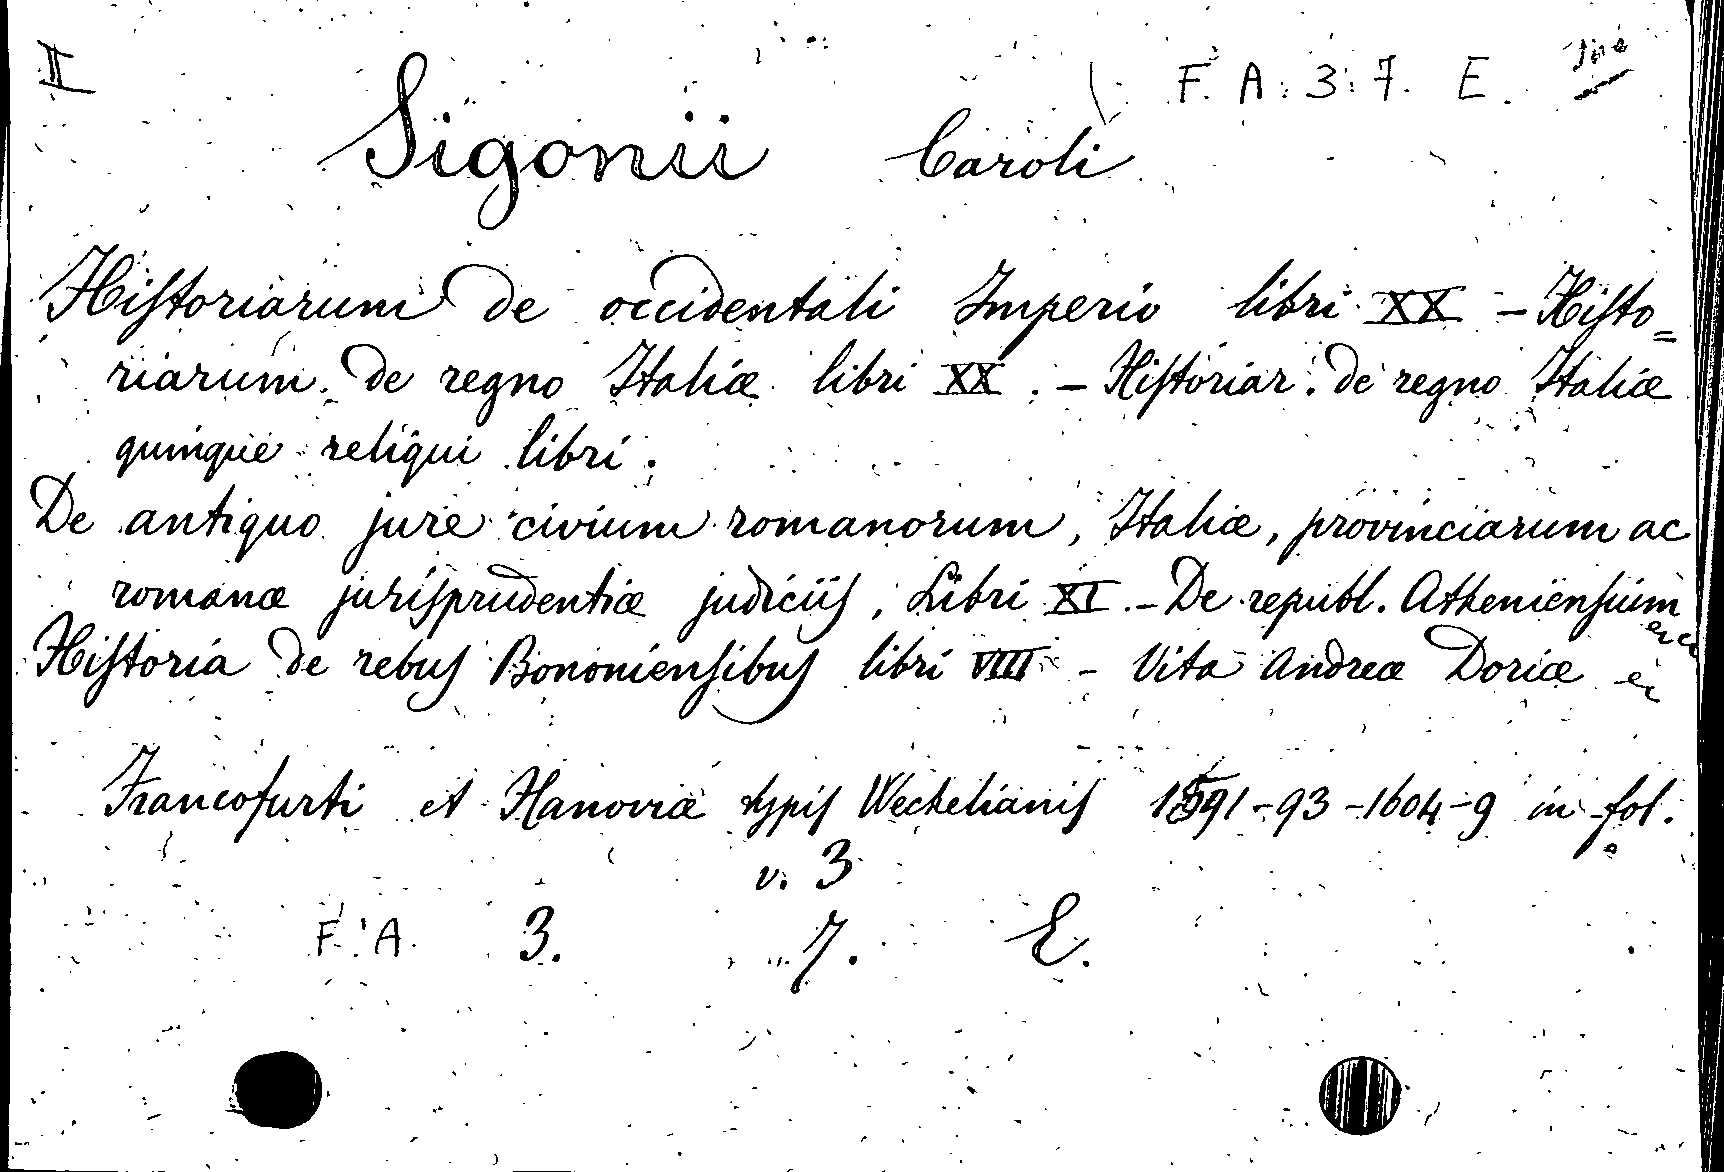 II
F. A. 3. 7. E.
Sigonii Caroli
Hiſtoriarum de occidentali Imperio libri XX - Hiſto=
riarum de regno Italiæ libri XX. - Hiſtoriar. de regno Italiæ
quinque reliqui libri.
De antiquo jure civium romanorum, Italiæ, provinciarum ac
romanæ juriſprudentiæ judiciiſ, Libri XI. - De republ. Athenienſium
Hiſtoria de rebuſ Bononienſibuſ libri VIII - Vita Andreæ Doriæ
Francofurti et Hanoviæ typiſ Wechelianiſ 1591-93-1604-9 in fol.
v. 3
F. A. 3. 7. E.